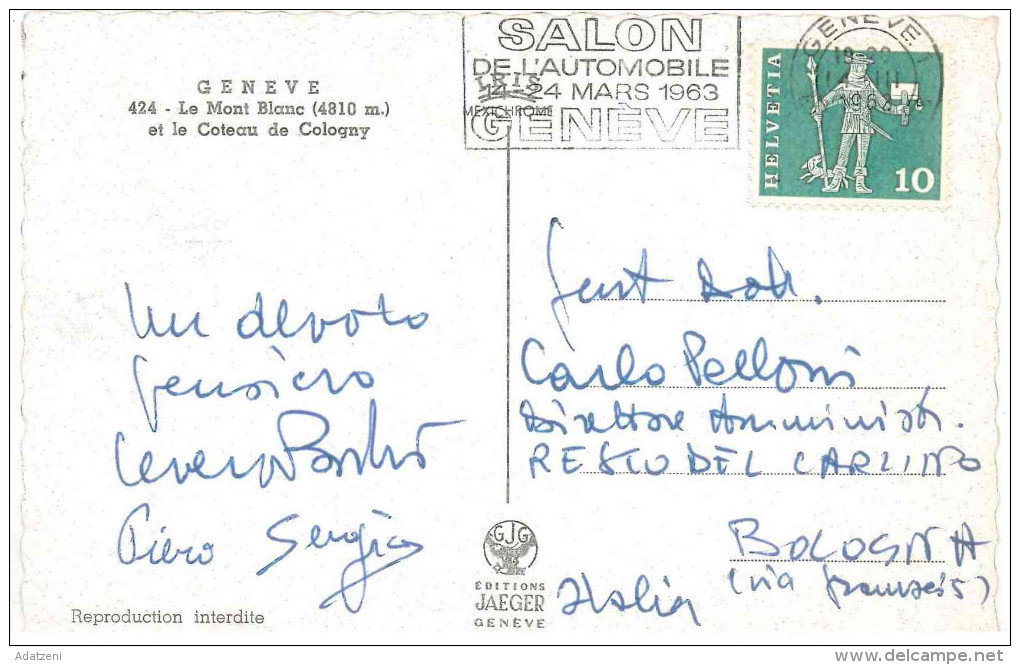 GENEVE
424 - Le Mont Blanc (4810 m.)
et le Coteau de Cologny
SALON
DE L'AUTOMOBILE
14-24 MARS 1963
GENÈVE
IRIS
MEXICHROME
GENÈVE 1
HELVETIA
10
Un devoto
pensiero
Severo
Piero Sergio
Gent Dott.
Carlo Pelloni
Direttore Amministr.
RESTO DEL CARLINO
BOLOGNA
(via
Italia
GJG
EDITIONS
JAEGER
GENÈVE
Reproduction interdite
Adatzeni
delcampe.net